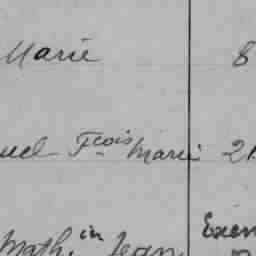 Marie 8
uel Fcois Marie 21
Math.in Jean Exem